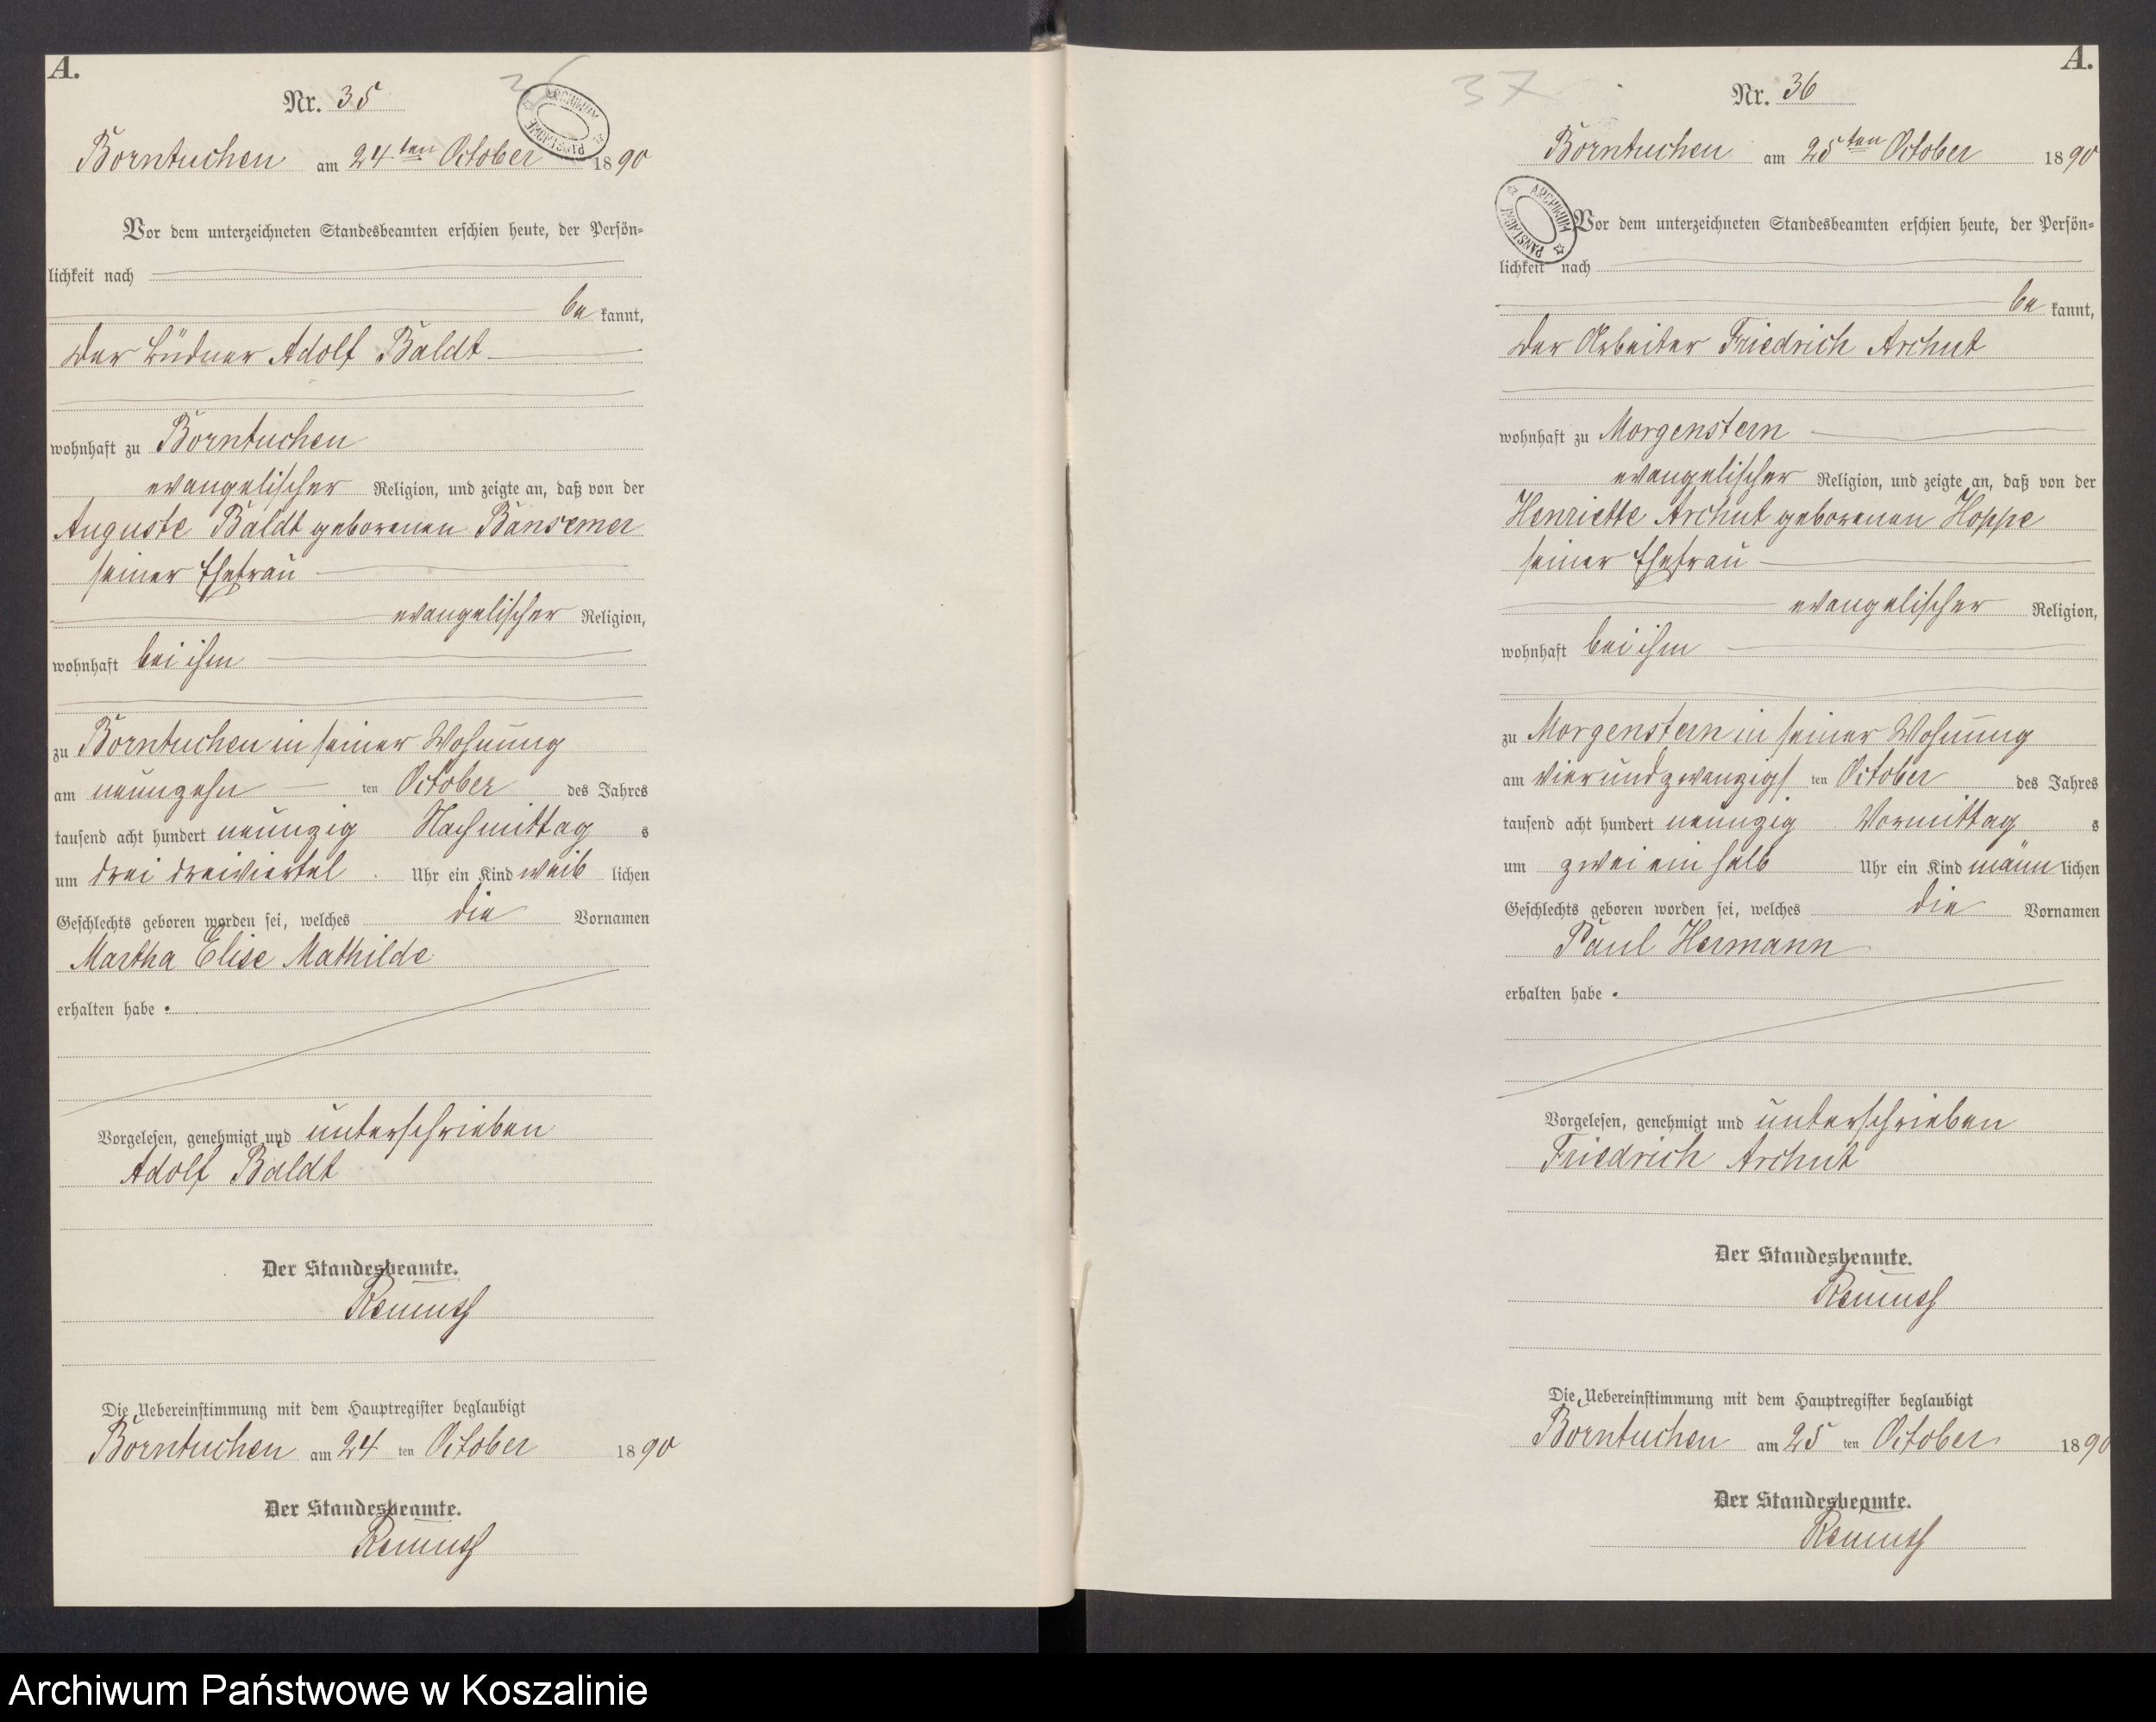 A.
Nr. 35
ARCHIWUM PAŃSTWOWE
Borntuchen am 24ten October 1890
Vor dem unterzeichneten Standesbeamten erschien heute, der Persön-
lichkeit nach
be kannt,
der Büdner Adolf Baldt
wohnhaft zu Borntuchen
evangelischer Religion, und zeigte an, daß von der
Auguste Baldt geborenen Bansemer
seiner Ehefrau
evangelischer Religion,
wohnhaft bei ihm
zu Borntuchen in seiner Wohnung
am neunzehn ten October des Jahres
tausend acht hundert neunzig Nachmittag s
um drei dreiviertel Uhr ein Kind weib lichen
Geschlechts geboren worden sei, welches die Vornamen
Martha Elise Mathilde
erhalten habe.
Vorgelesen, genehmigt und unterschrieben
Adolf Baldt
Der Standesbeamte.
Die Uebereinstimmung mit dem Hauptregister beglaubigt
Borntuchen am 24 ten October 1890
Der Standesbeamte.
A.
37
Nr. 36
Borntuchen am 25ten October 1890
ARCHIWUM PAŃSTWOWE
Vor dem unterzeichneten Standesbeamten erschien heute, der Persön-
lichkeit nach
be kannt,
der Arbeiter Friedrich Archut
wohnhaft zu Morgenstern
evangelischer Religion, und zeigte an, daß von der
Henriette Archut geborenen Hoppe
seiner Ehefrau
evangelischer Religion,
wohnhaft bei ihm
zu Morgenstern in seiner Wohnung
am vierundzwanzigs ten October des Jahres
tausend acht hundert neunzig Vormittag s
um zwei ein halb Uhr ein Kind männ lichen
Geschlechts geboren worden sei, welches die Vornamen
Paul Hermann
erhalten habe.
Vorgelesen, genehmigt und unterschrieben
Friedrich Archut
Der Standesbeamte.
Die Uebereinstimmung mit dem Hauptregister beglaubigt
Borntuchen am 25 ten October 1890
Der Standesbeamte.
Archiwum Państwowe w Koszalinie